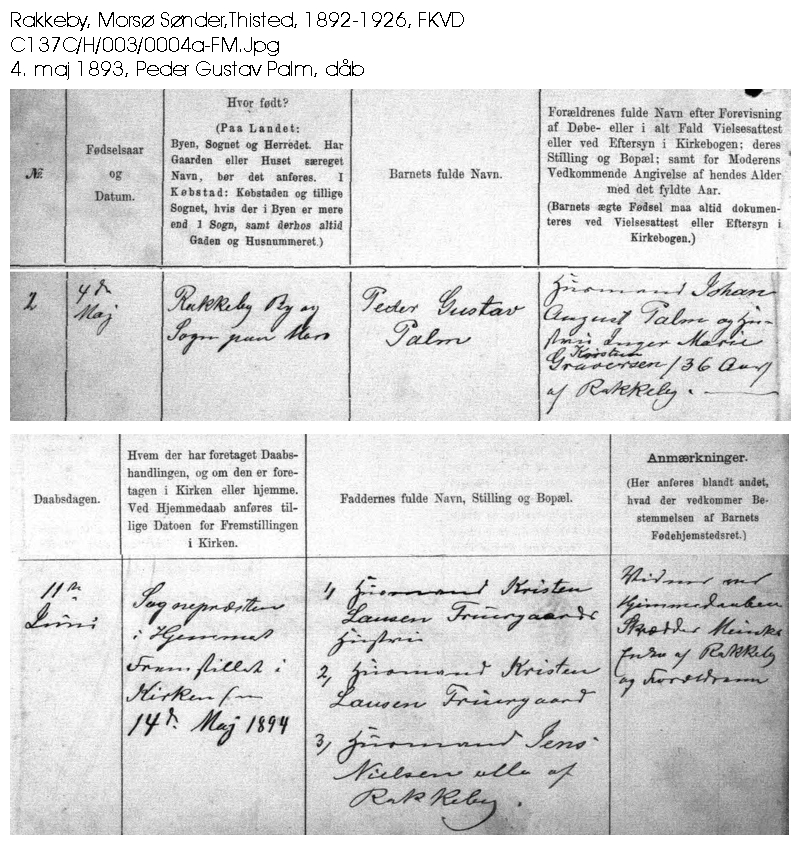 Rakkeby, Morsø Sønder,Thisted, 1892-1926, FKVD
C137C/H/003/0004a-FM.Jpg
4. maj 1893, Peder Gustav Palm, dåb
№
Fødselsaar
og
Datum.
Hvor født?
(Paa Landet:
Byen, Sognet og Herredet. Har
Gaarden eller Huset særeget
Navn, bør det anføres. I
Købstad: Købstaden og tillige
Sognet, hvis der i Byen er mere
end 1 Sogn, samt derhos altid
Gaden og Husnummeret.)
Barnets fulde Navn.
Forældrenes fulde Navn efter Forevisning
af Døbe- eller i alt Fald Vielsesattest
eller ved Eftersyn i Kirkebogen; deres
Stilling og Bopæl; samt for Moderens
Vedkommende Angivelse af hendes Alder
med det fyldte Aar.
(Barnets ægte Fødsel maa altid dokumen-
teres ved Vielsesattest eller Eftersyn i
Kirkebogen.)
2
4de
Maj
Rakkeby By og
Sogn paa Mors
Peder Gustav
Palm
Husmand Johan
August Palm og Hu-
stru Inger Marie
Kirstine
Graversen /36 Aar/
af Rakkeby.
Daabsdagen.
Hvem der har foretaget Daabs-
handlingen, og om den er fore-
tagen i Kirken eller hjemme.
Ved Hjemmedaab anføres til-
lige Datoen for Fremstillingen
i Kirken.
Faddernes fulde Navn, Stilling og Bopæl.
Anmærkninger.
(Her anføres blandt andet,
hvad der vedkommer Be-
stemmelsen af Barnets
Fødehjemstedsret.)
11te
Juni
Sognepræsten
i Hjemmet
Fremstillet i
Kirken
14d. Maj 1894
1, Husmand Kristen
Lausen Fruergaards
Hustru
2, Husmand Kristen
Lausen Fruergaard
3, Husmand Jens
Nielsen alle af
Rakkeby.
Vidner ved
Hjemmedaaben
Skrædder
af Rakkeby
og Forældrene